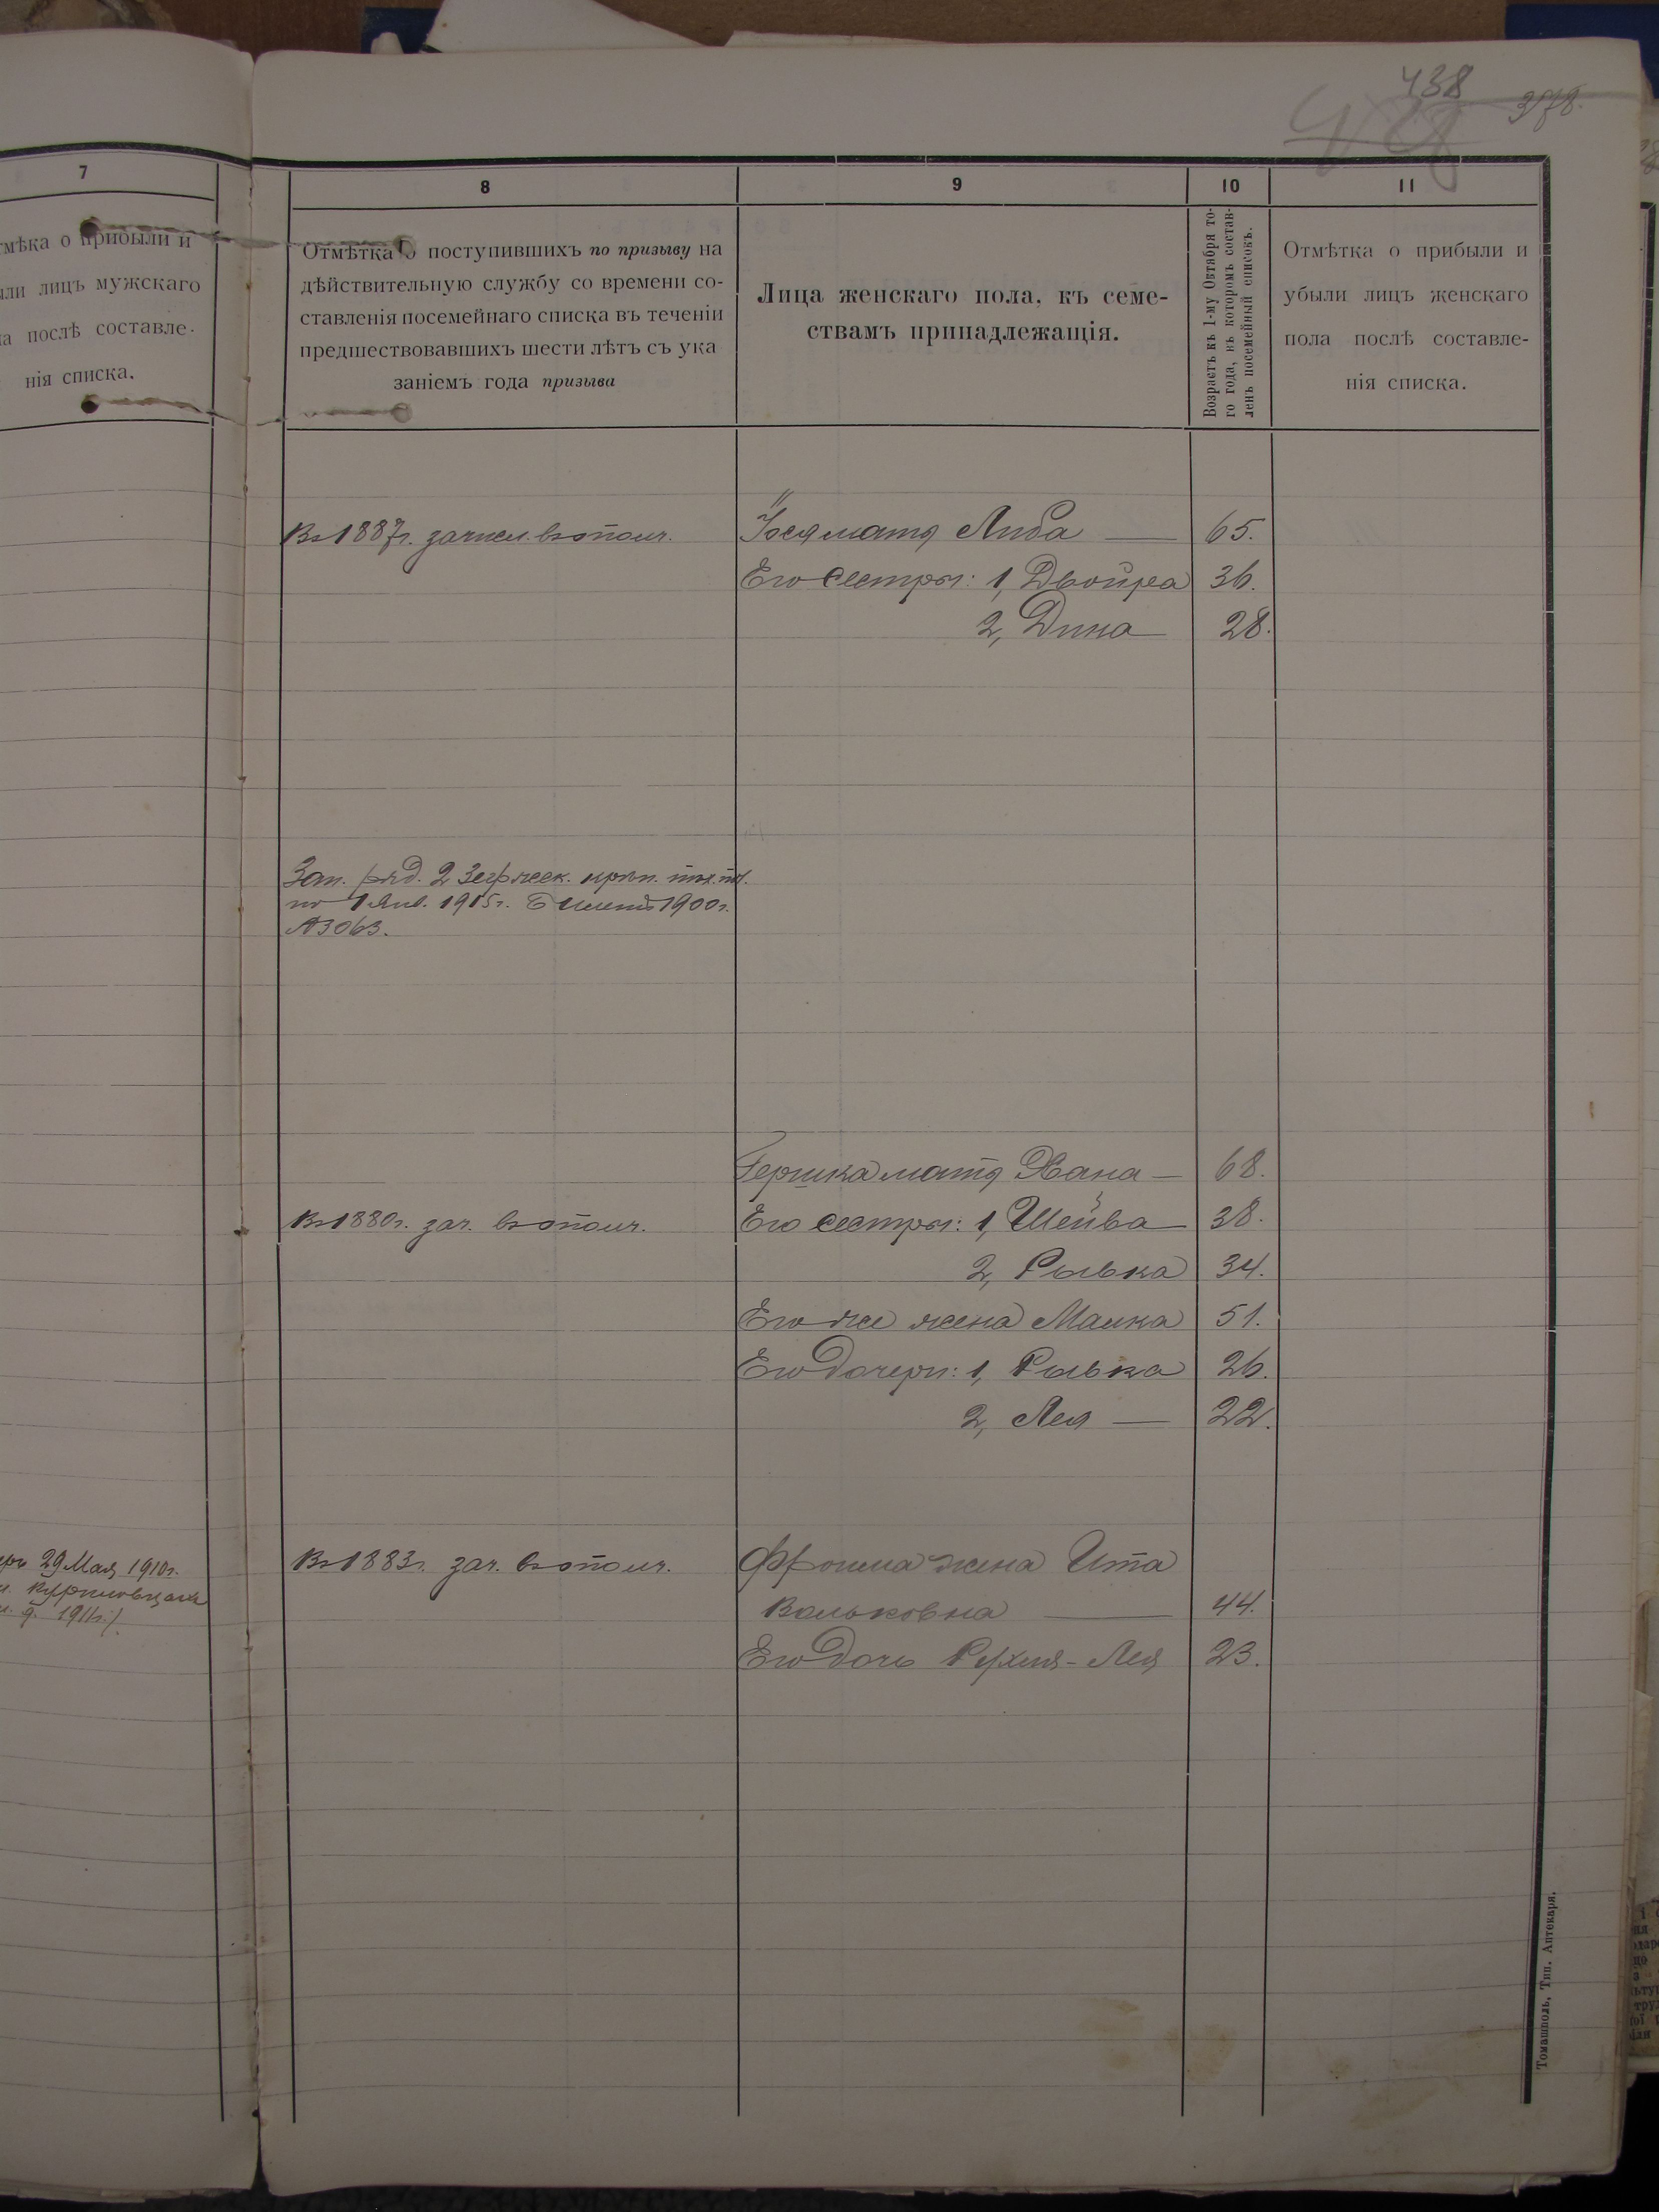 438
378.
7
мѣка о прибыли и
ли лицъ мужскаго
а послѣ составле-
нія списка.
29 Мая 1910г.
8
Отмѣтка о поступившихъ по призыву на
дѣйствительную службу со времени со-
ставленія посемейнаго списка въ теченіи
предшествовавшихъ шести лѣтъ съ ука
заніемъ года призыва
9
Лица женскаго пола, къ семе-
ствамъ принадлежащія.
10
Возрастъ къ 1-му Октября то-
го года, въ которомъ состав-
ленъ посемейный списокъ.
11
Отмѣтка о прибыли и
убыли лицъ женскаго
пола послѣ составле-
нія списка.
Въ 1887г. зачисл. въ ополч.
мать Либа — 65.
Его сестры: 1, Двойра 36.
2, Дина — 28.
Зап. ряд. 2
по 1 Янв. 1915г. Билетъ 1900г.
№3063.
Гершка мать Хана — 68.
Въ 1880г. зач. въ ополч.
Его сестры: 1, Шейва — 38.
2, Рывка 34.
Его же жена Малка 51.
Его дочери: 1, Рывка 26.
2, Лея — 22.
Въ 1883г. зач. въ ополч.
Фроима жена Ита
Вольковна — 44.
Его дочь Рухля-Лея 23.
Томашполь, Тип. Аптекаря.